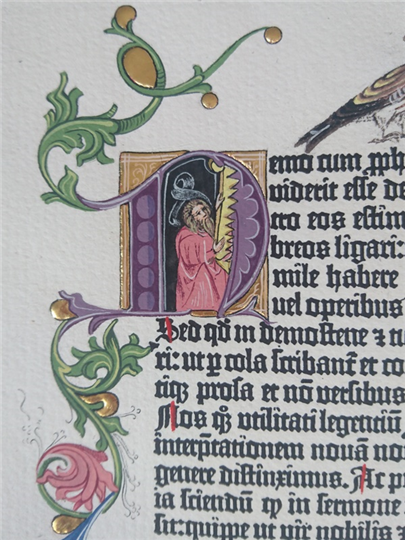 Nemo cum ꝓph
viderit esse de
tro eos estim
breos ligari:
mile habere
uel operibus
Sed qđ in demostene ⁊ t
ri: ut ꝑ cola scribant᷑ et co
tiqꝫ prosa et nō versibus
Nos qꝫ utilitati legentiū
interp̄tationem nouā no
genere distinximus. Ac p
ia sciendū ꝙ in sermone
sit: quippe ut vir nobilis ⁊